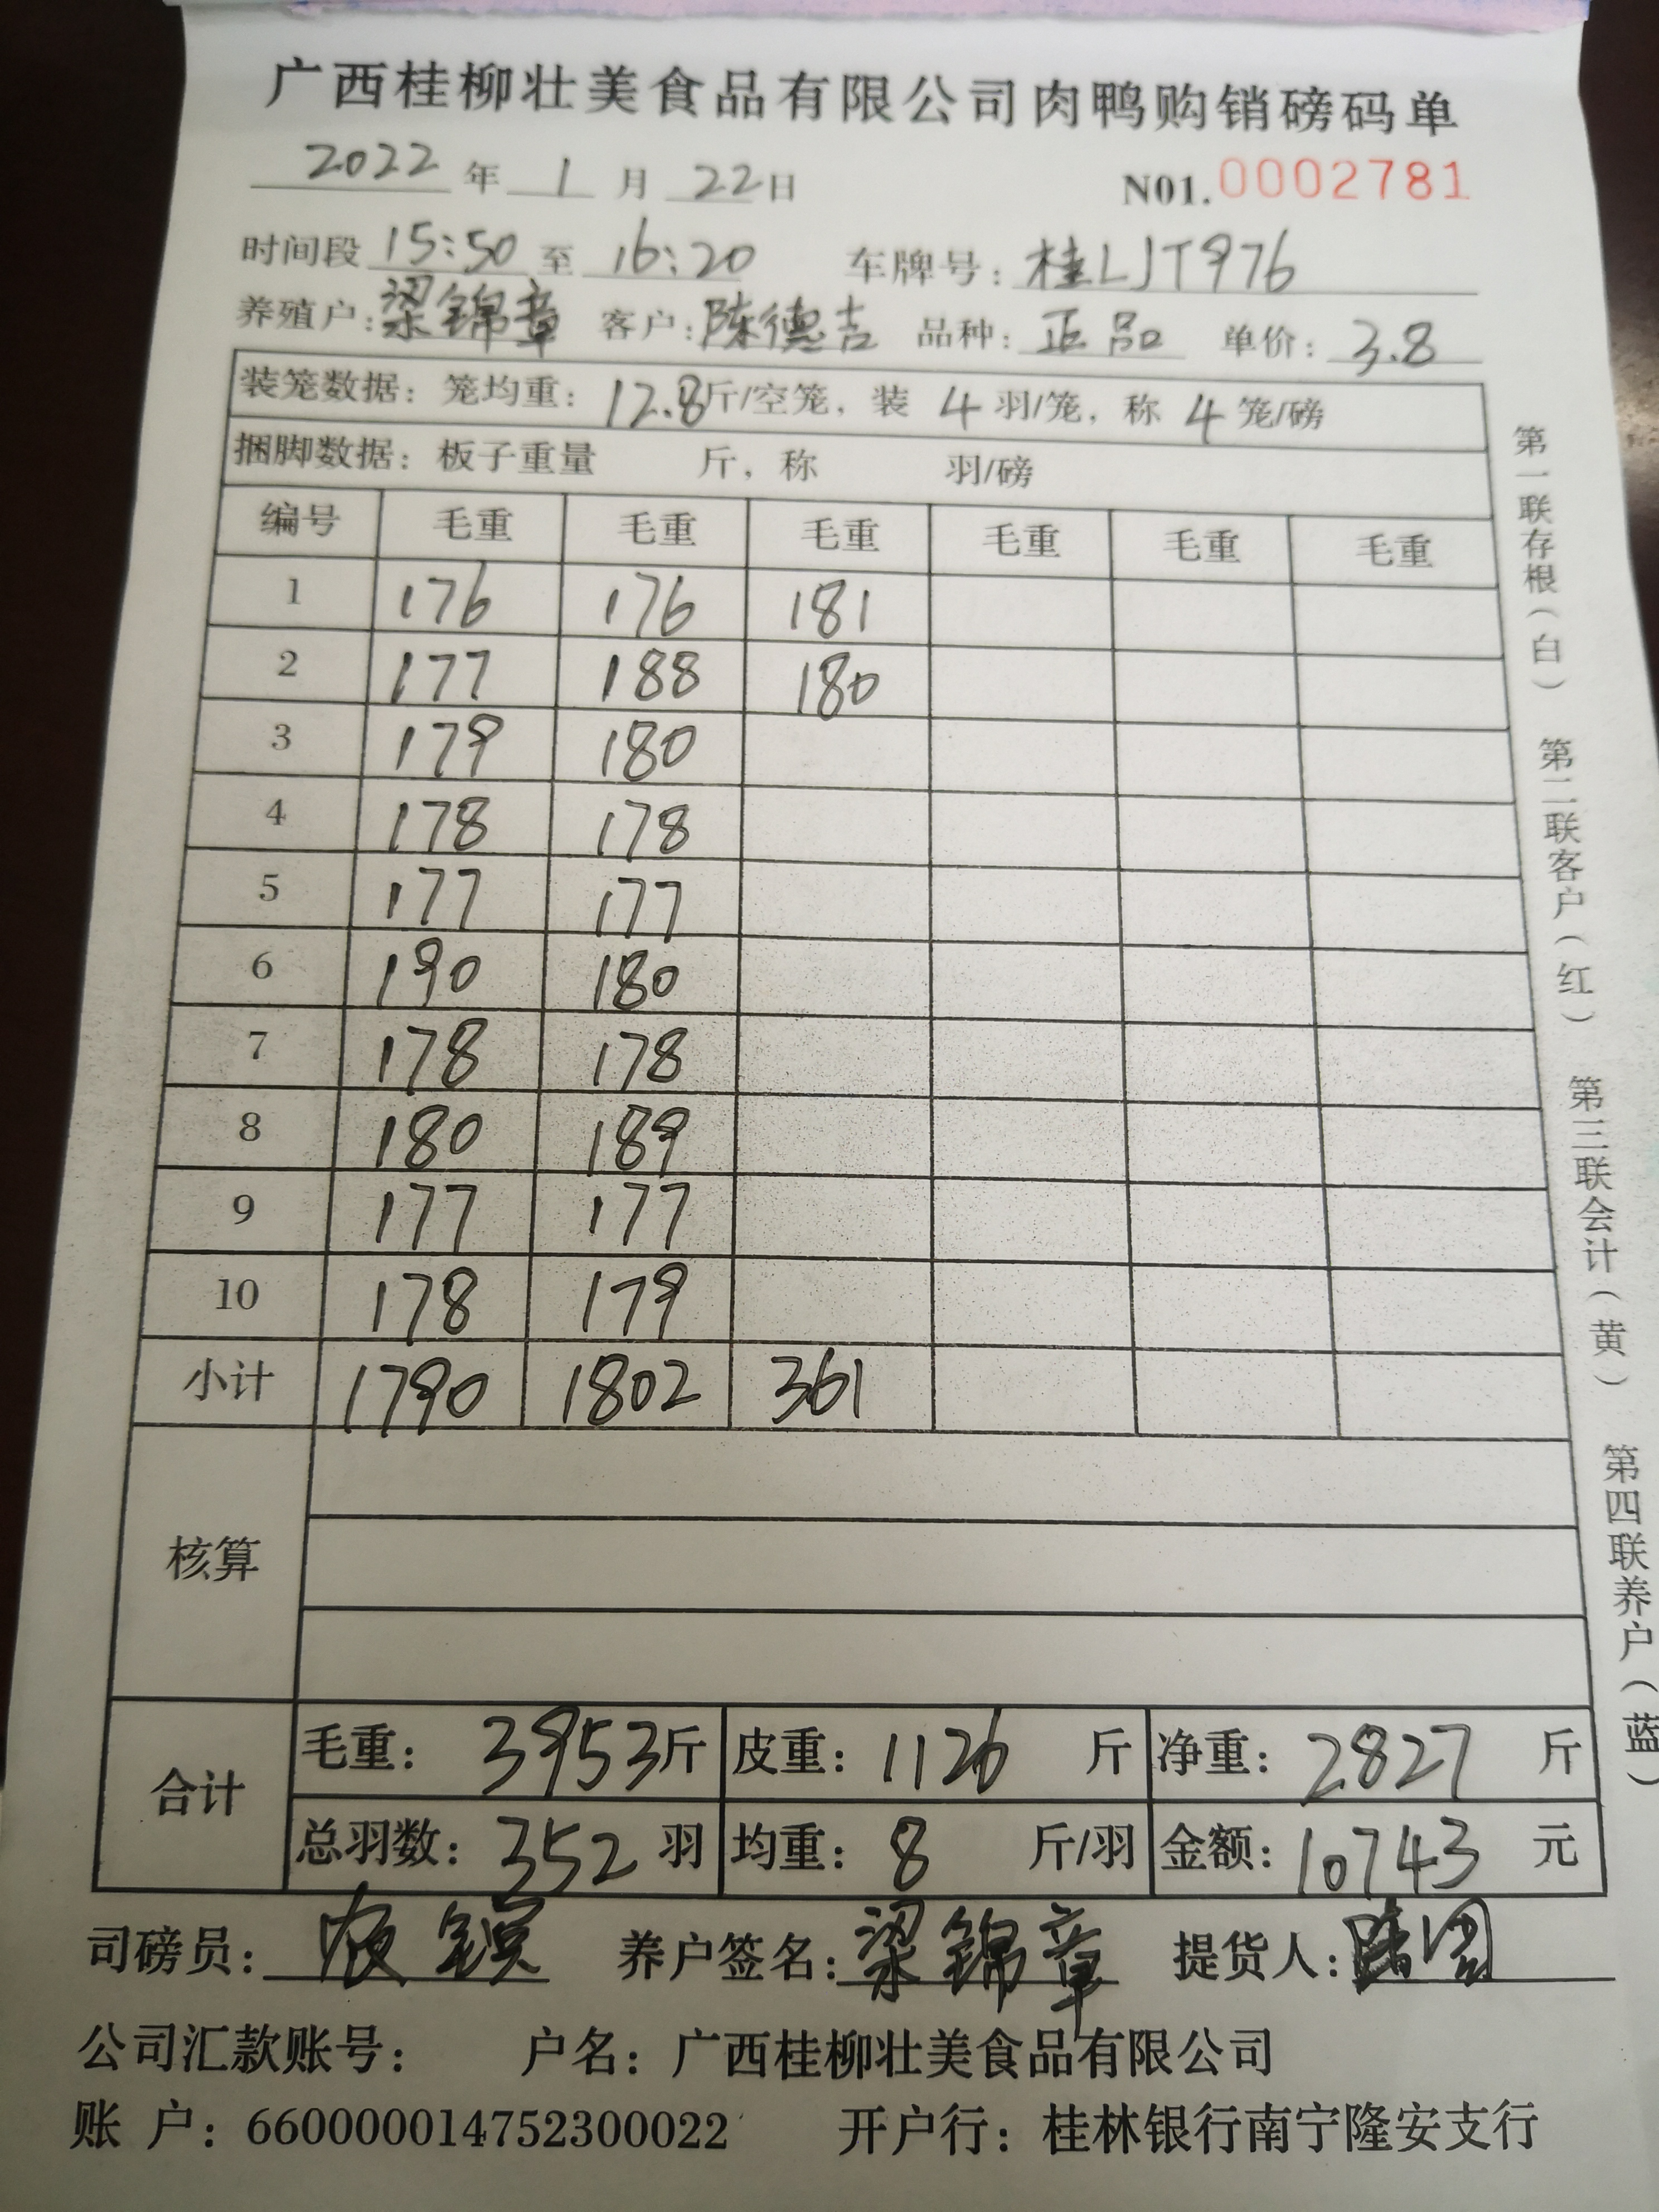 广西桂柳壮美食品有限公司肉鸭购销磅码单
2022 年 1 月 22 日 N01. 0002781
时间段 15:50 至 16:20 车牌号: 桂LJT976
养殖户: 梁锦章 客户: 陈德吉 品种: 正品 单价: 3.8
装笼数据: 笼均重: 12.8 斤/空笼, 装 4 羽/笼, 称 4 笼/磅
捆脚数据: 板子重量 斤, 称 羽/磅
编号 毛重 毛重 毛重 毛重 毛重 毛重
1 176 176 181
2 177 188 180
3 179 180
4 178 178
5 177 177
6 190 180
7 178 178
8 180 189
9 177 177
10 178 179
小计 1790 1802 361
核算
合计
毛重: 3953 斤 皮重: 1126 斤 净重: 2827 斤
总羽数: 352 羽 均重: 8 斤/羽 金额: 10743 元
司磅员: 养户签名: 梁锦章 提货人:
公司汇款账号: 户名: 广西桂柳壮美食品有限公司
账 户: 660000014752300022 开户行: 桂林银行南宁隆安支行
第一联存根(白) 第二联客户(红) 第三联会计(黄) 第四联养户(蓝)